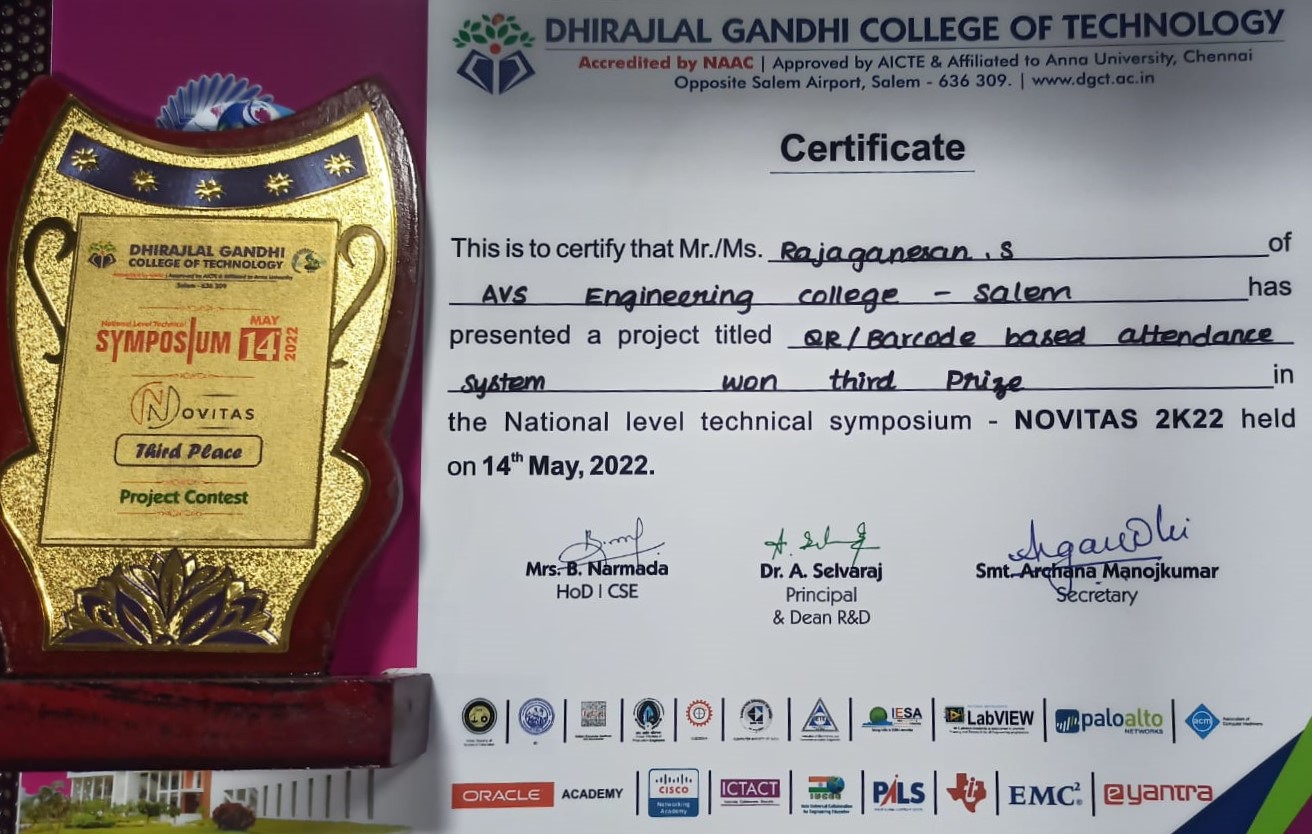 DHIRAJLAL GANDHI
COLLEGE OF TECHNOLOGY
Salem - 636 309
National Level Technical
SYMPOSIUM
MAY
14
2022
NOVITAS
Third Place
Project Contest
DHIRAJLAL GANDHI COLLEGE OF TECHNOLOGY
Accredited by NAAC | Approved by AICTE & Affiliated to Anna University, Chennai
Opposite Salem Airport, Salem - 636 309. | www.dgct.ac.in
Certificate
This is to certify that Mr./Ms. Rajaganesan . S of
AVS Engineering college - Salem has
presented a project titled QR/Barcode based attendance
system won third Prize in
the National level technical symposium - NOVITAS 2K22 held
on 14th May, 2022.
Mrs. B. Narmada
HoD | CSE
Dr. A. Selvaraj
Principal
& Dean R&D
Smt. Archana Manojkumar
Secretary
IESA
LabVIEW
paloalto
NETWORKS
acm
ORACLE ACADEMY
CISCO
Networking
Academy
ICTACT
PALS
EMC²
eyantra